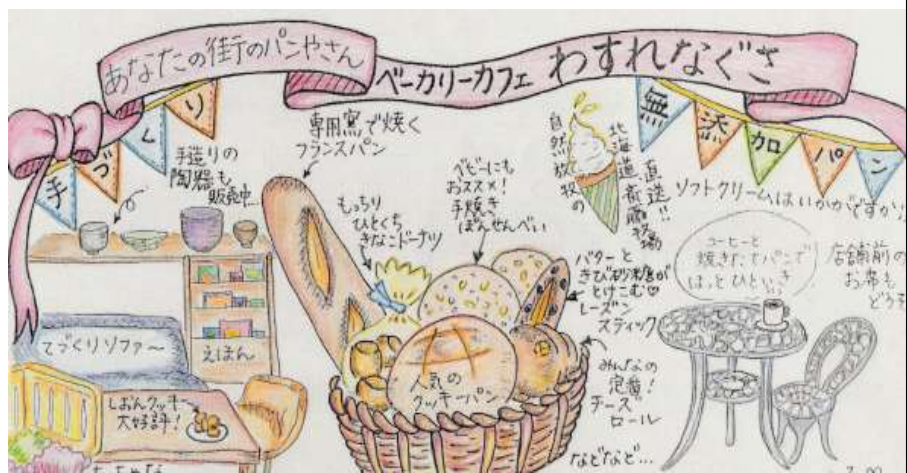 あなたの街のパンやさん
ベーカリーカフェ わすれなぐさ
手づくり
無添加パン
手造りの
陶器も
販売中
専用窯で焼く
フランスパン
もっちり
ひとくち
きなこドーナツ
ベビーにも
おススメ!
手焼き
ぽんせんべい
北海道 斎藤牧場
直送!!
自然放牧の
ソフトクリームはいかがですか
バターと
きび砂糖が
とけこむ♡
レーズン
スティック
コーヒーと
焼きたてパンで
ほっとひといき
店舗前の
お席も
どうぞ
てづくりソファ〜
えほん
しおんクッキー
大好評!
人気の
クッキーパン
みんなの
定番!
チーズ
ロール
などなど...